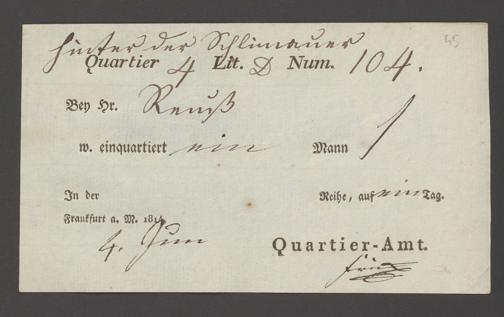 hinter der Schlimauer
Quartier 4 Lit. D Num. 104.
Bey Hr. Reuß
w. einquartiert ein Mann 1
In der Reihe, auf ein Tag.
Frankfurt a. M. 181
4. Juni
Quartier-Amt.